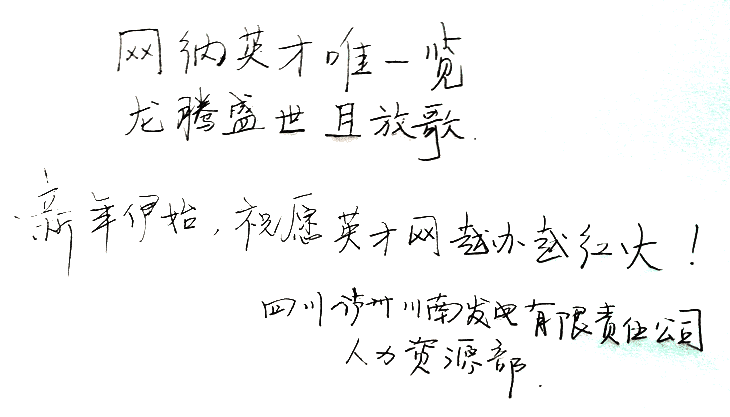 网纳英才唯一览
龙腾盛世且放歌.
新年伊始，祝愿英才网越办越红火！
四川泸州川南发电有限责任公司
人力资源部.